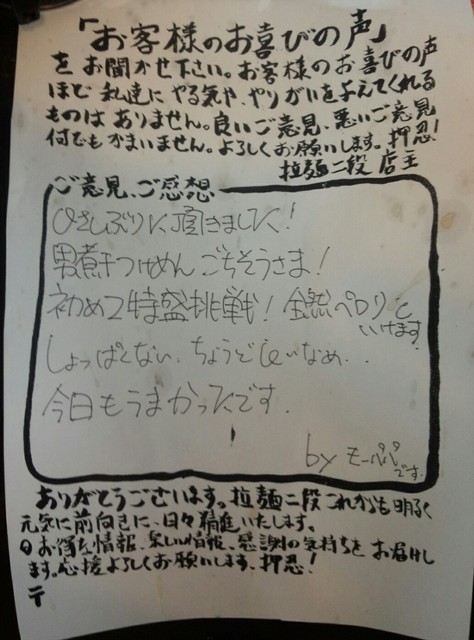 「お客様のお喜びの声」
をお聞かせ下さい。お客様のお喜びの声
ほど私達にやる気や、やりがいを与えてくれる
ものはありません。良いご意見、悪いご意見
何でもかまいません。よろしくお願いします。押忍!
拉麺二段 店主
ご意見、ご感想
ひさしぶりに頂きました!
男煮干つけめん ごちそうさま!
初めて特盛挑戦! 全然ペロリと
いけます
しょっぱくない、ちょうどしいなめ..
今日もうまかったです.
by モーパパ
です.
ありがとうございます。拉麺二段これからも明るく
元気に前向きに、日々精進いたします。
お得な情報、楽しい情報、感謝の気持ちをお届けし
ます。応援よろしくお願いします、押忍!
〒